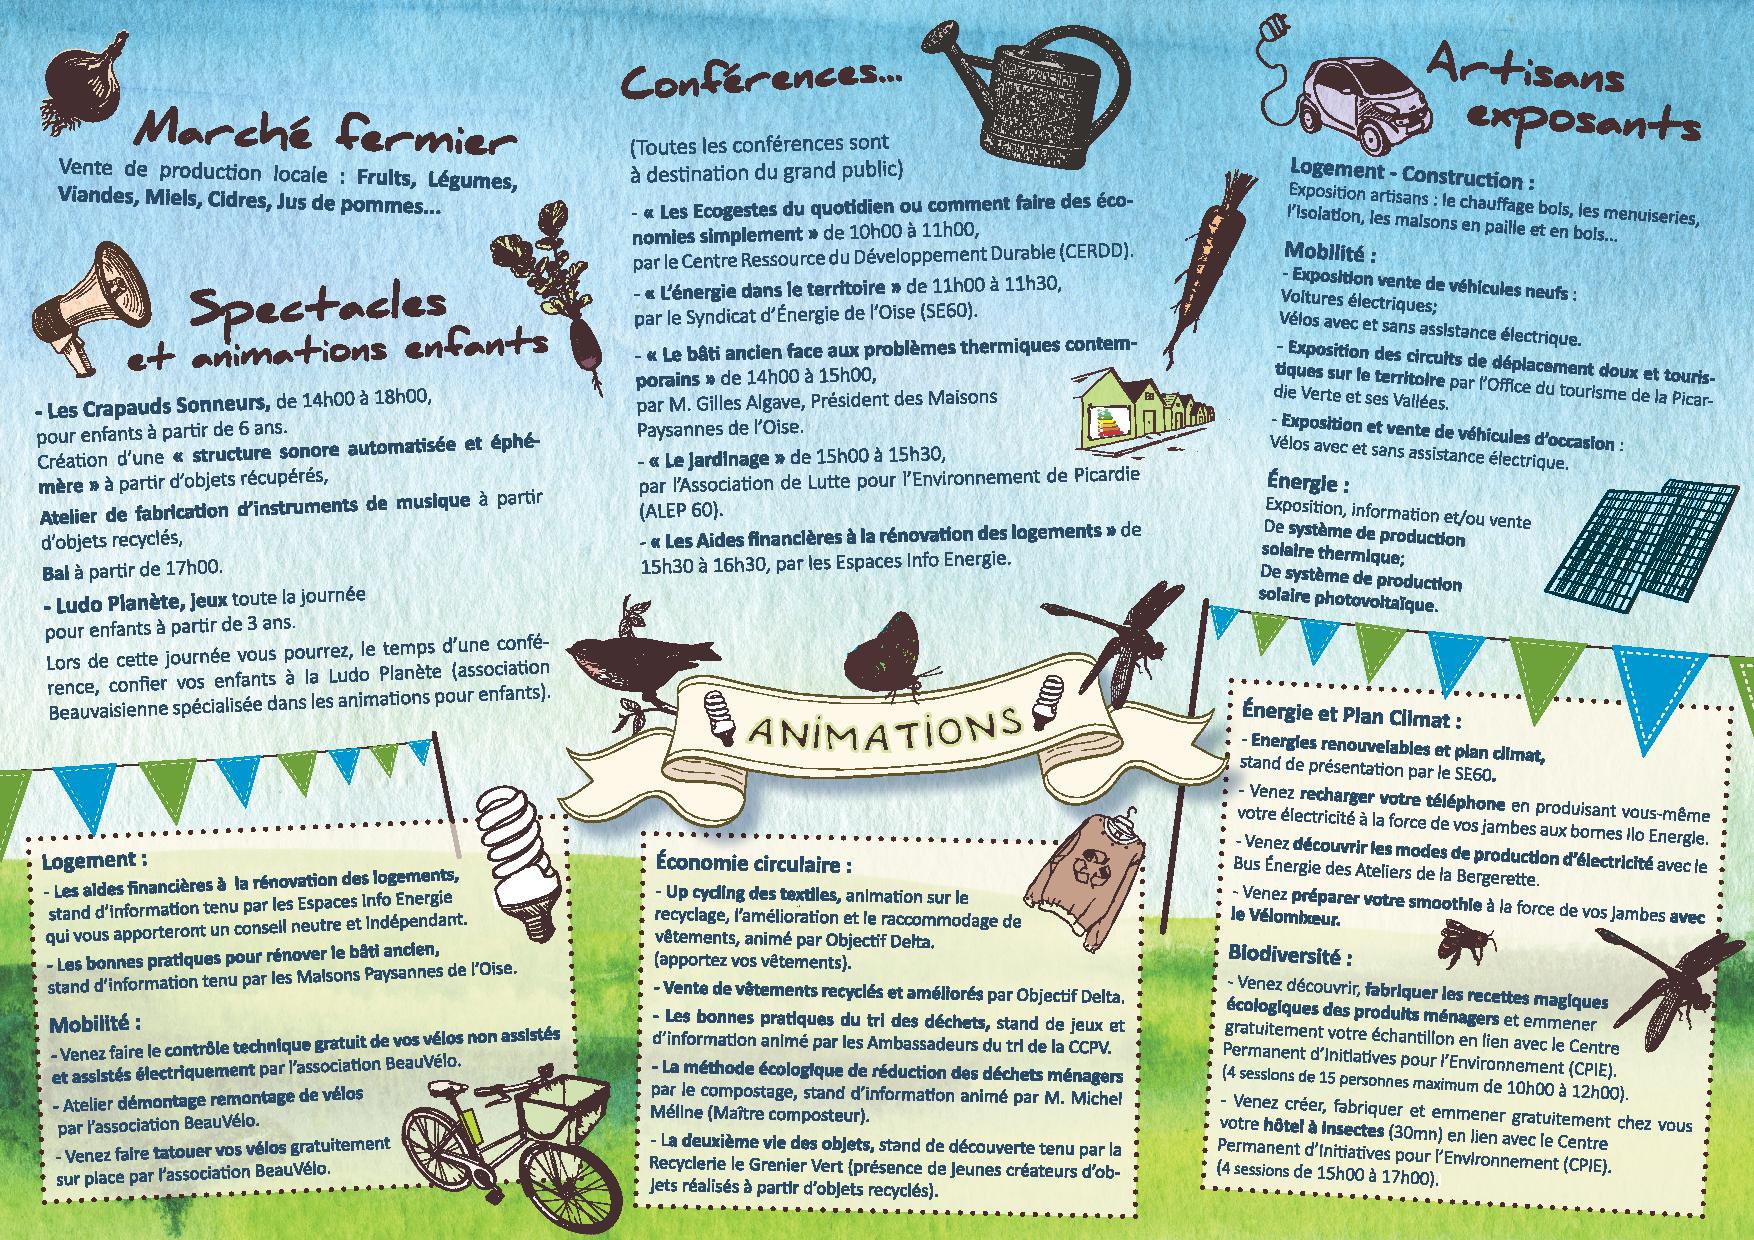 Marché fermier
Vente de production locale : Fruits, Légumes,
Viandes, Miels, Cidres, Jus de pommes...
Spectacles
et animations enfants
- Les Crapauds Sonneurs, de 14h00 à 18h00,
pour enfants à partir de 6 ans.
Création d'une « structure sonore automatisée et éphé-
mère » à partir d'objets récupérés,
Atelier de fabrication d'instruments de musique à partir
d'objets recyclés,
Bal à partir de 17h00.
- Ludo Planète, jeux toute la journée
pour enfants à partir de 3 ans.
Lors de cette journée vous pourrez, le temps d'une confé-
rence, confier vos enfants à la Ludo Planète (association
Beauvaisienne spécialisée dans les animations pour enfants).
Conférences...
(Toutes les conférences sont
à destination du grand public)
- « Les Ecogestes du quotidien ou comment faire des éco-
nomies simplement » de 10h00 à 11h00,
par le Centre Ressource du Développement Durable (CERDD).
- « L'énergie dans le territoire » de 11h00 à 11h30,
par le Syndicat d'Énergie de l'Oise (SE60).
- « Le bâti ancien face aux problèmes thermiques contem-
porains » de 14h00 à 15h00,
par M. Gilles Algave, Président des Maisons
Paysannes de l'Oise.
- « Le jardinage » de 15h00 à 15h30,
par l'Association de Lutte pour l'Environnement de Picardie
(ALEP 60).
- « Les Aides financières à la rénovation des logements » de
15h30 à 16h30, par les Espaces Info Energie.
Artisans
exposants
Logement - Construction :
Exposition artisans : le chauffage bois, les menuiseries,
l'isolation, les maisons en paille et en bois...
Mobilité :
- Exposition vente de véhicules neufs :
Voitures électriques;
Vélos avec et sans assistance électrique.
- Exposition des circuits de déplacement doux et touris-
tiques sur le territoire par l'Office du tourisme de la Picar-
die Verte et ses Vallées.
- Exposition et vente de véhicules d'occasion :
Vélos avec et sans assistance électrique.
Énergie :
Exposition, information et/ou vente
De système de production
solaire thermique;
De système de production
solaire photovoltaïque.
ANIMATIONS
Logement :
- Les aides financières à la rénovation des logements,
stand d'information tenu par les Espaces Info Energie
qui vous apporteront un conseil neutre et indépendant.
- Les bonnes pratiques pour rénover le bâti ancien,
stand d'information tenu par les Maisons Paysannes de l'Oise.
Mobilité :
- Venez faire le contrôle technique gratuit de vos vélos non assistés
et assistés électriquement par l'association BeauVélo.
- Atelier démontage remontage de vélos
par l'association BeauVélo.
- Venez faire tatouer vos vélos gratuitement
sur place par l'association BeauVélo.
Économie circulaire :
- Up cycling des textiles, animation sur le
recyclage, l'amélioration et le raccommodage de
vêtements, animé par Objectif Delta.
(apportez vos vêtements).
- Vente de vêtements recyclés et améliorés par Objectif Delta.
- Les bonnes pratiques du tri des déchets, stand de jeux et
d'information animé par les Ambassadeurs du tri de la CCPV.
- La méthode écologique de réduction des déchets ménagers
par le compostage, stand d'information animé par M. Michel
Méline (Maître composteur).
- La deuxième vie des objets, stand de découverte tenu par la
Recyclerie le Grenier Vert (présence de jeunes créateurs d'ob-
jets réalisés à partir d'objets recyclés).
Énergie et Plan Climat :
- Energies renouvelables et plan climat,
stand de présentation par le SE60.
- Venez recharger votre téléphone en produisant vous-même
votre électricité à la force de vos jambes aux bornes Ilo Energie.
- Venez découvrir les modes de production d'électricité avec le
Bus Énergie des Ateliers de la Bergerette.
- Venez préparer votre smoothie à la force de vos jambes avec
le Vélomixeur.
Biodiversité :
- Venez découvrir, fabriquer les recettes magiques
écologiques des produits ménagers et emmener
gratuitement votre échantillon en lien avec le Centre
Permanent d'Initiatives pour l'Environnement (CPIE).
(4 sessions de 15 personnes maximum de 10h00 à 12h00).
- Venez créer, fabriquer et emmener gratuitement chez vous
votre hôtel à insectes (30mn) en lien avec le Centre
Permanent d'Initiatives pour l'Environnement (CPIE).
(4 sessions de 15h00 à 17h00).